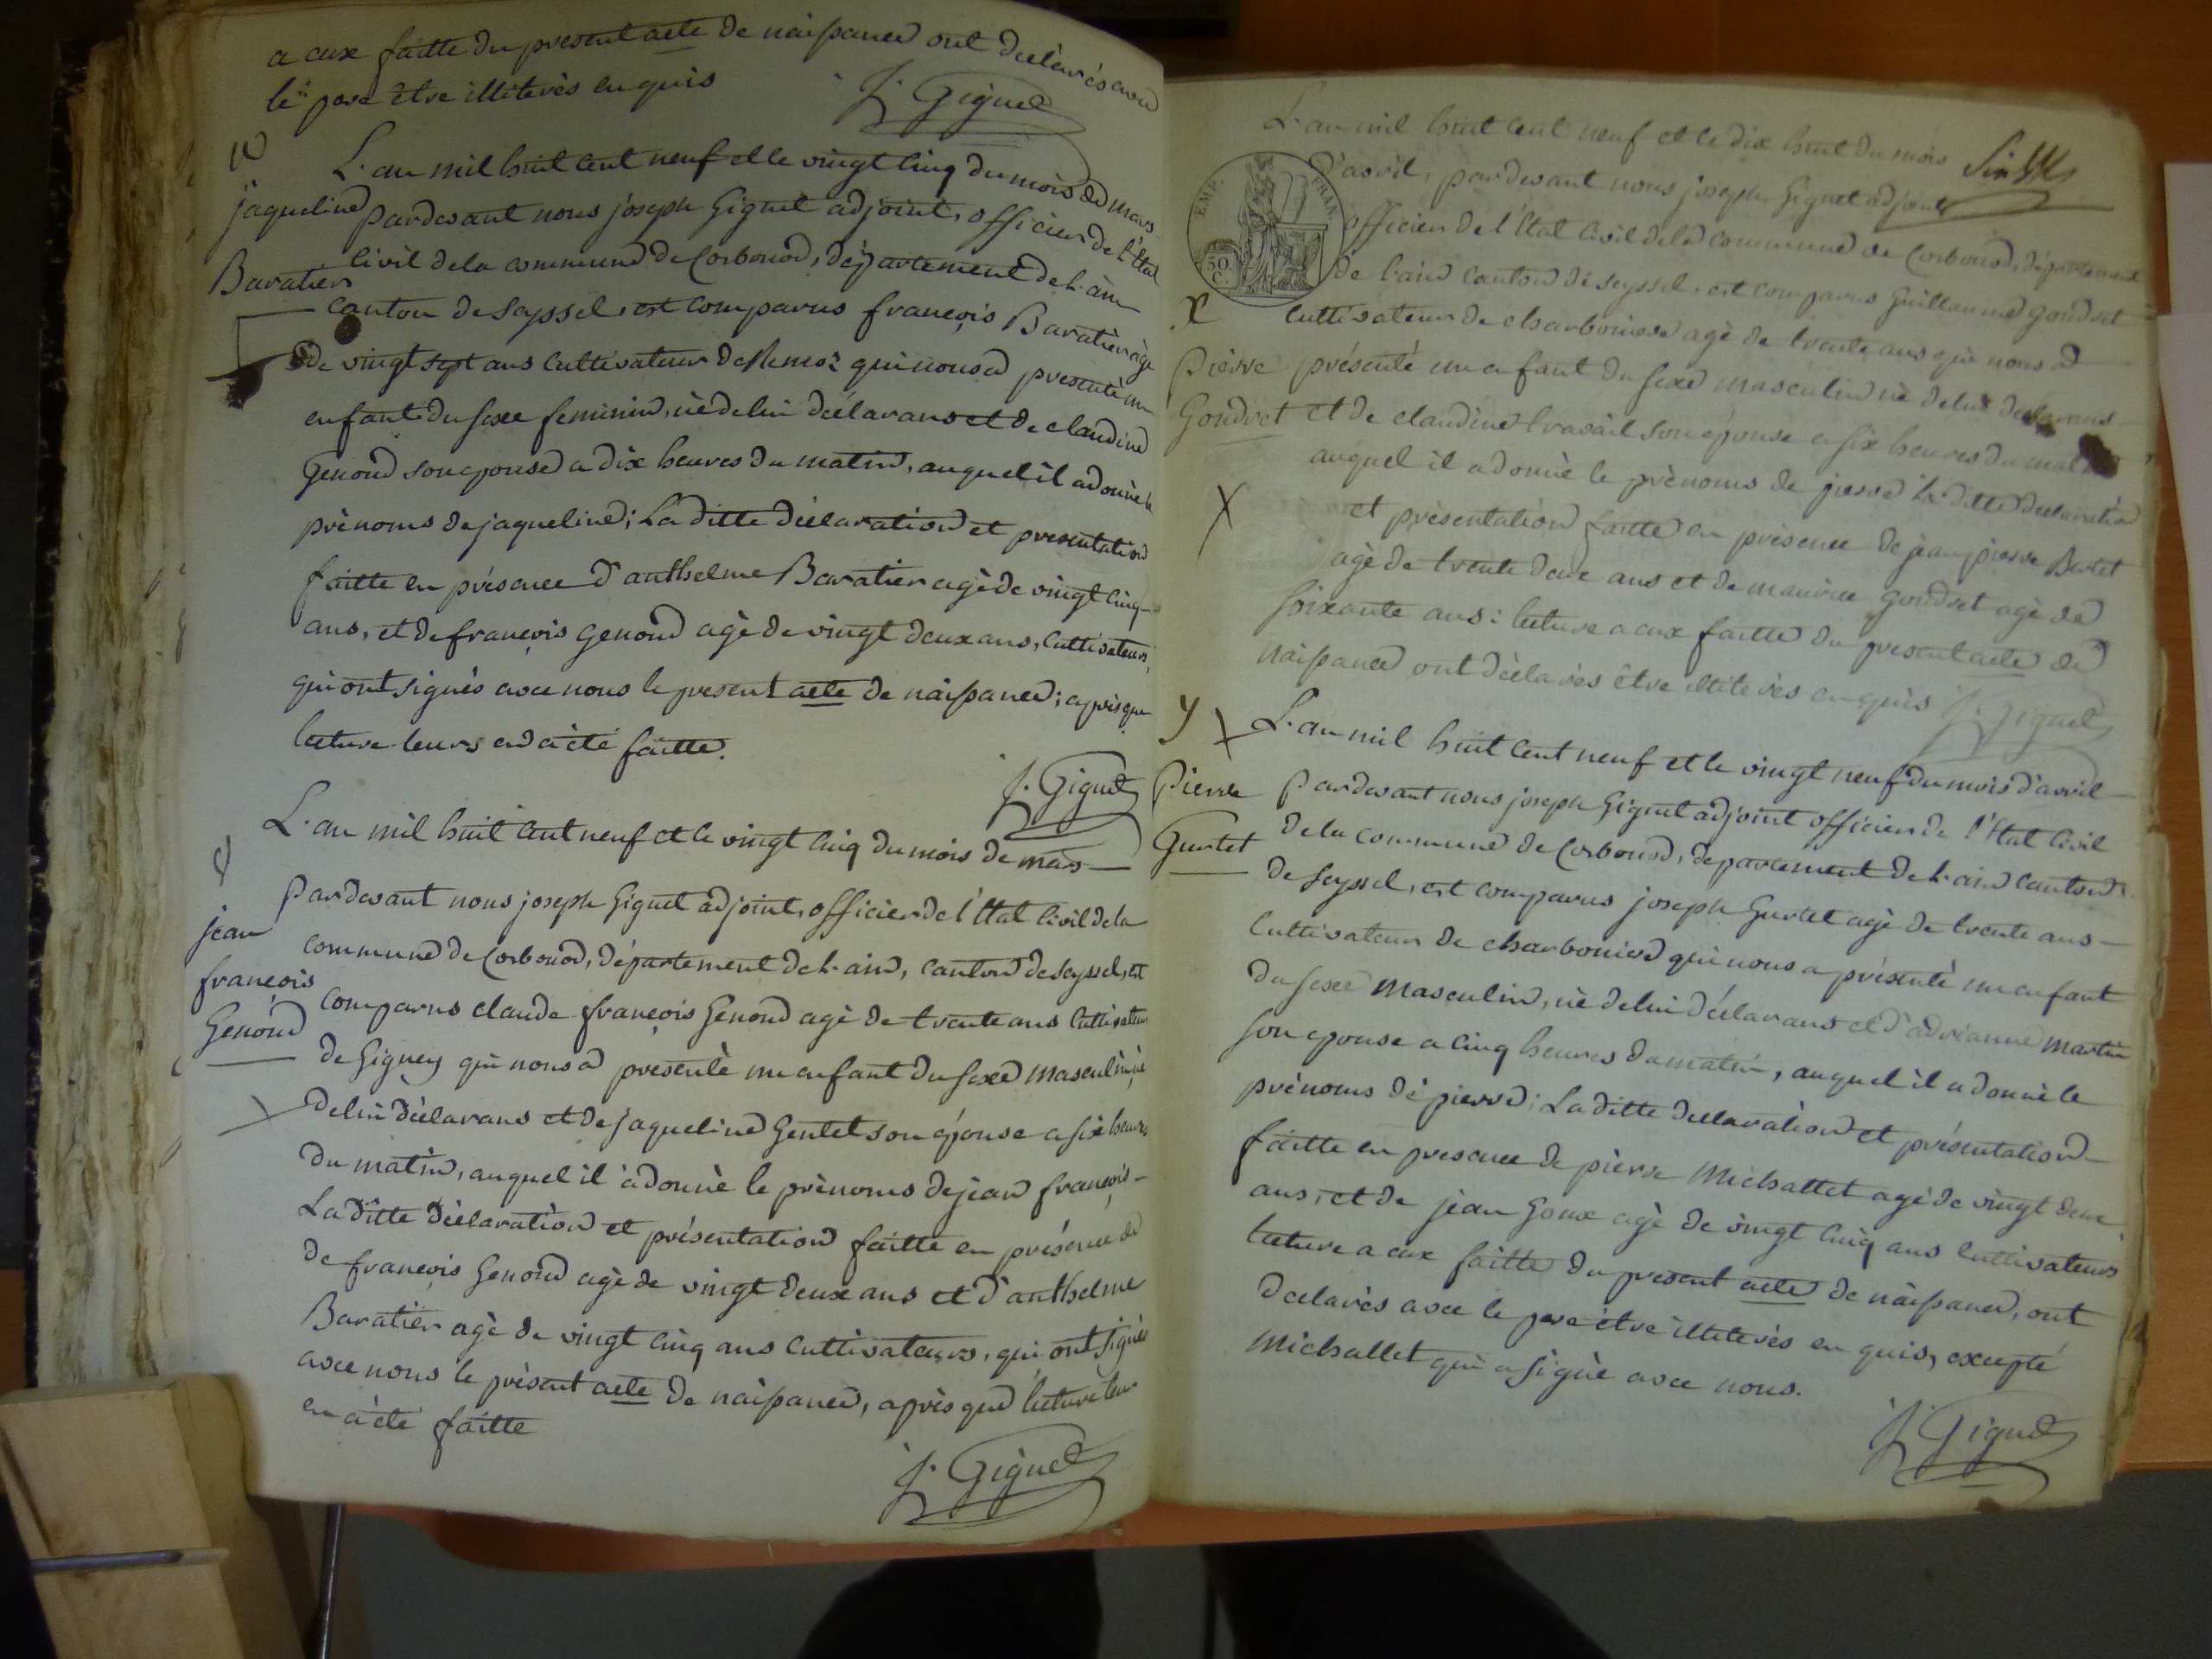 a eux faitte du present acte de naissance ont déclarés avec
le pere être illiterés enquis
J. Giguet
jaqueline
Baratier
L'an mil huit cent neuf et le vingt cinq du mois de mars
pardevant nous joseph Giguet adjoint, officier de l'Etat
civil de la commune de Corbonod, département de l'ain
canton de Seyssel, est comparus françois Baratier âgé
de vingt sept ans cultivateur de qui nous a presenté un
enfant du sexe feminin, né de lui déclarans et de claudine
Genond son epouse a dix heures du matin, auquel il a donné le
prénoms de jaqueline; La ditte déclaration et presentation
faitte en présence d'anthelme Baratier agé de vingt cinq
ans, et de françois Genond agé de vingt deux ans, cultivateurs,
qui ont signés avec nous le present acte de naissance; après que
lecture leurs en a été faitte.
J. Giguet
jean
françois
Genond
L'an mil huit cent neuf et le vingt cinq du mois de mars
Pardevant nous joseph Giguet adjoint, officier de l'Etat civil de la
commune de Corbonod, département de l'ain, canton de Seyssel, est
comparus claude françois Genond agé de trente ans cultivateur
de Gigney qui nous a présenté un enfant du sexe masculin, né
de lui déclarans et de jaqueline Gentet son épouse a six heures
du matin, auquel il a donné le prénoms de jean françois
La ditte déclaration et présentation faitte en présence de
de françois Genond agé de vingt deux ans et d'anthelme
Baratier agé de vingt cinq ans cultivateurs, qui ont signés
avec nous le présent acte de naissance, après que lecture leur
en a été faitte
J. Giguet
EMP. FRAN.
50 C.
Pierre
Gondret
L'an mil huit cent neuf et le dix huit du mois
d'avril, pardevant nous joseph Giguet adjoint
officier de l'Etat civil de la commune de Corbonod, département
de l'ain canton de seyssel, est comparus Guillaume gondret
cultivateur de charboniere agé de trente ans qui nous a
présenté un enfant du sexe masculin né de lui declarans
et de claudine travail son épouse a six heures du matin
auquel il a donné le prénoms de pierre La ditte déclaration
et présentation faitte en présence de jean pierre Bertet
agé de trente deux ans et de maurice gondret agé de
soixante ans: lecture a eux faitte du present acte de
naissance ont déclarés être illiterés enquis J. Giguet
Pierre
Gurtet
L'an mil huit cent neuf et le vingt neuf du mois d'avril
Pardevant nous joseph Giguet adjoint officier de l'Etat civil
de la commune de Corbonod, departement de l'ain canton
de Seyssel, est comparus joseph Gurtet agé de trente ans
cultivateur de charboniere qui nous a présenté un enfant
du sexe masculin, né de lui déclarans et d'adrianne martin
son epouse a cinq heures du matin, auquel il a donné le
prénoms de pierre; La ditte declaration et présentation
faitte en presence de pierre Michallet agé de vingt deux
ans, et de jean Goux agé de vingt cinq ans cultivateurs
lecture a eux faitte du present acte de naissance, ont
declarés avec le pere être illiterés enquis, excepté
Michallet qui a signé avec nous.
J. Giguet